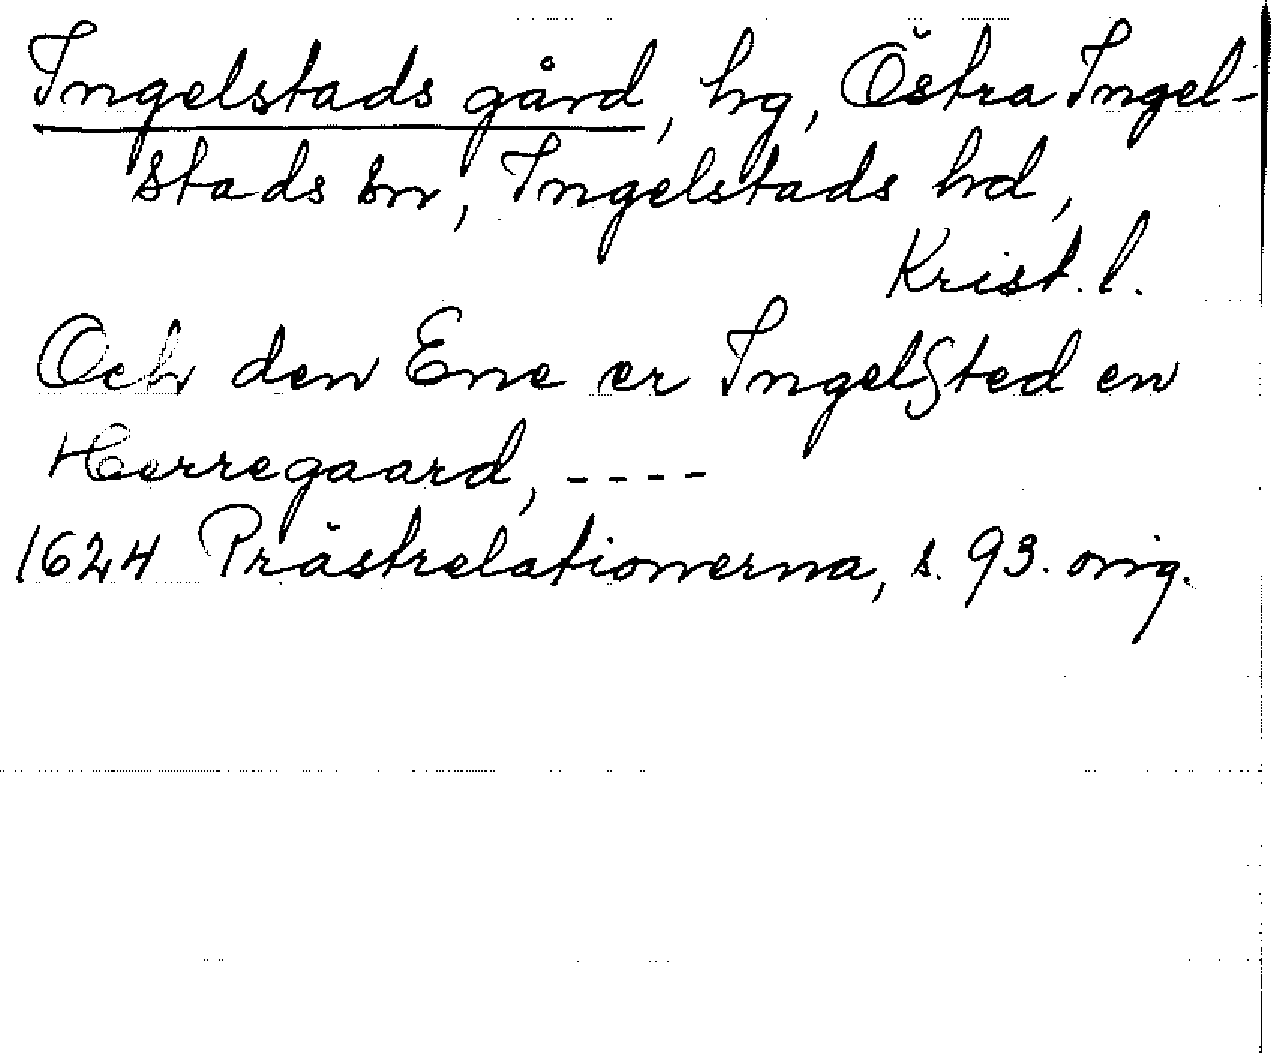 Ingelstads gård, hg, Östra Ingel-
stads sn, Ingelstads hd,
Krist. l.
Och den Ene er IngelSted en
Herregaard, ----
1624 Prästrelationerna, s. 93. orig.